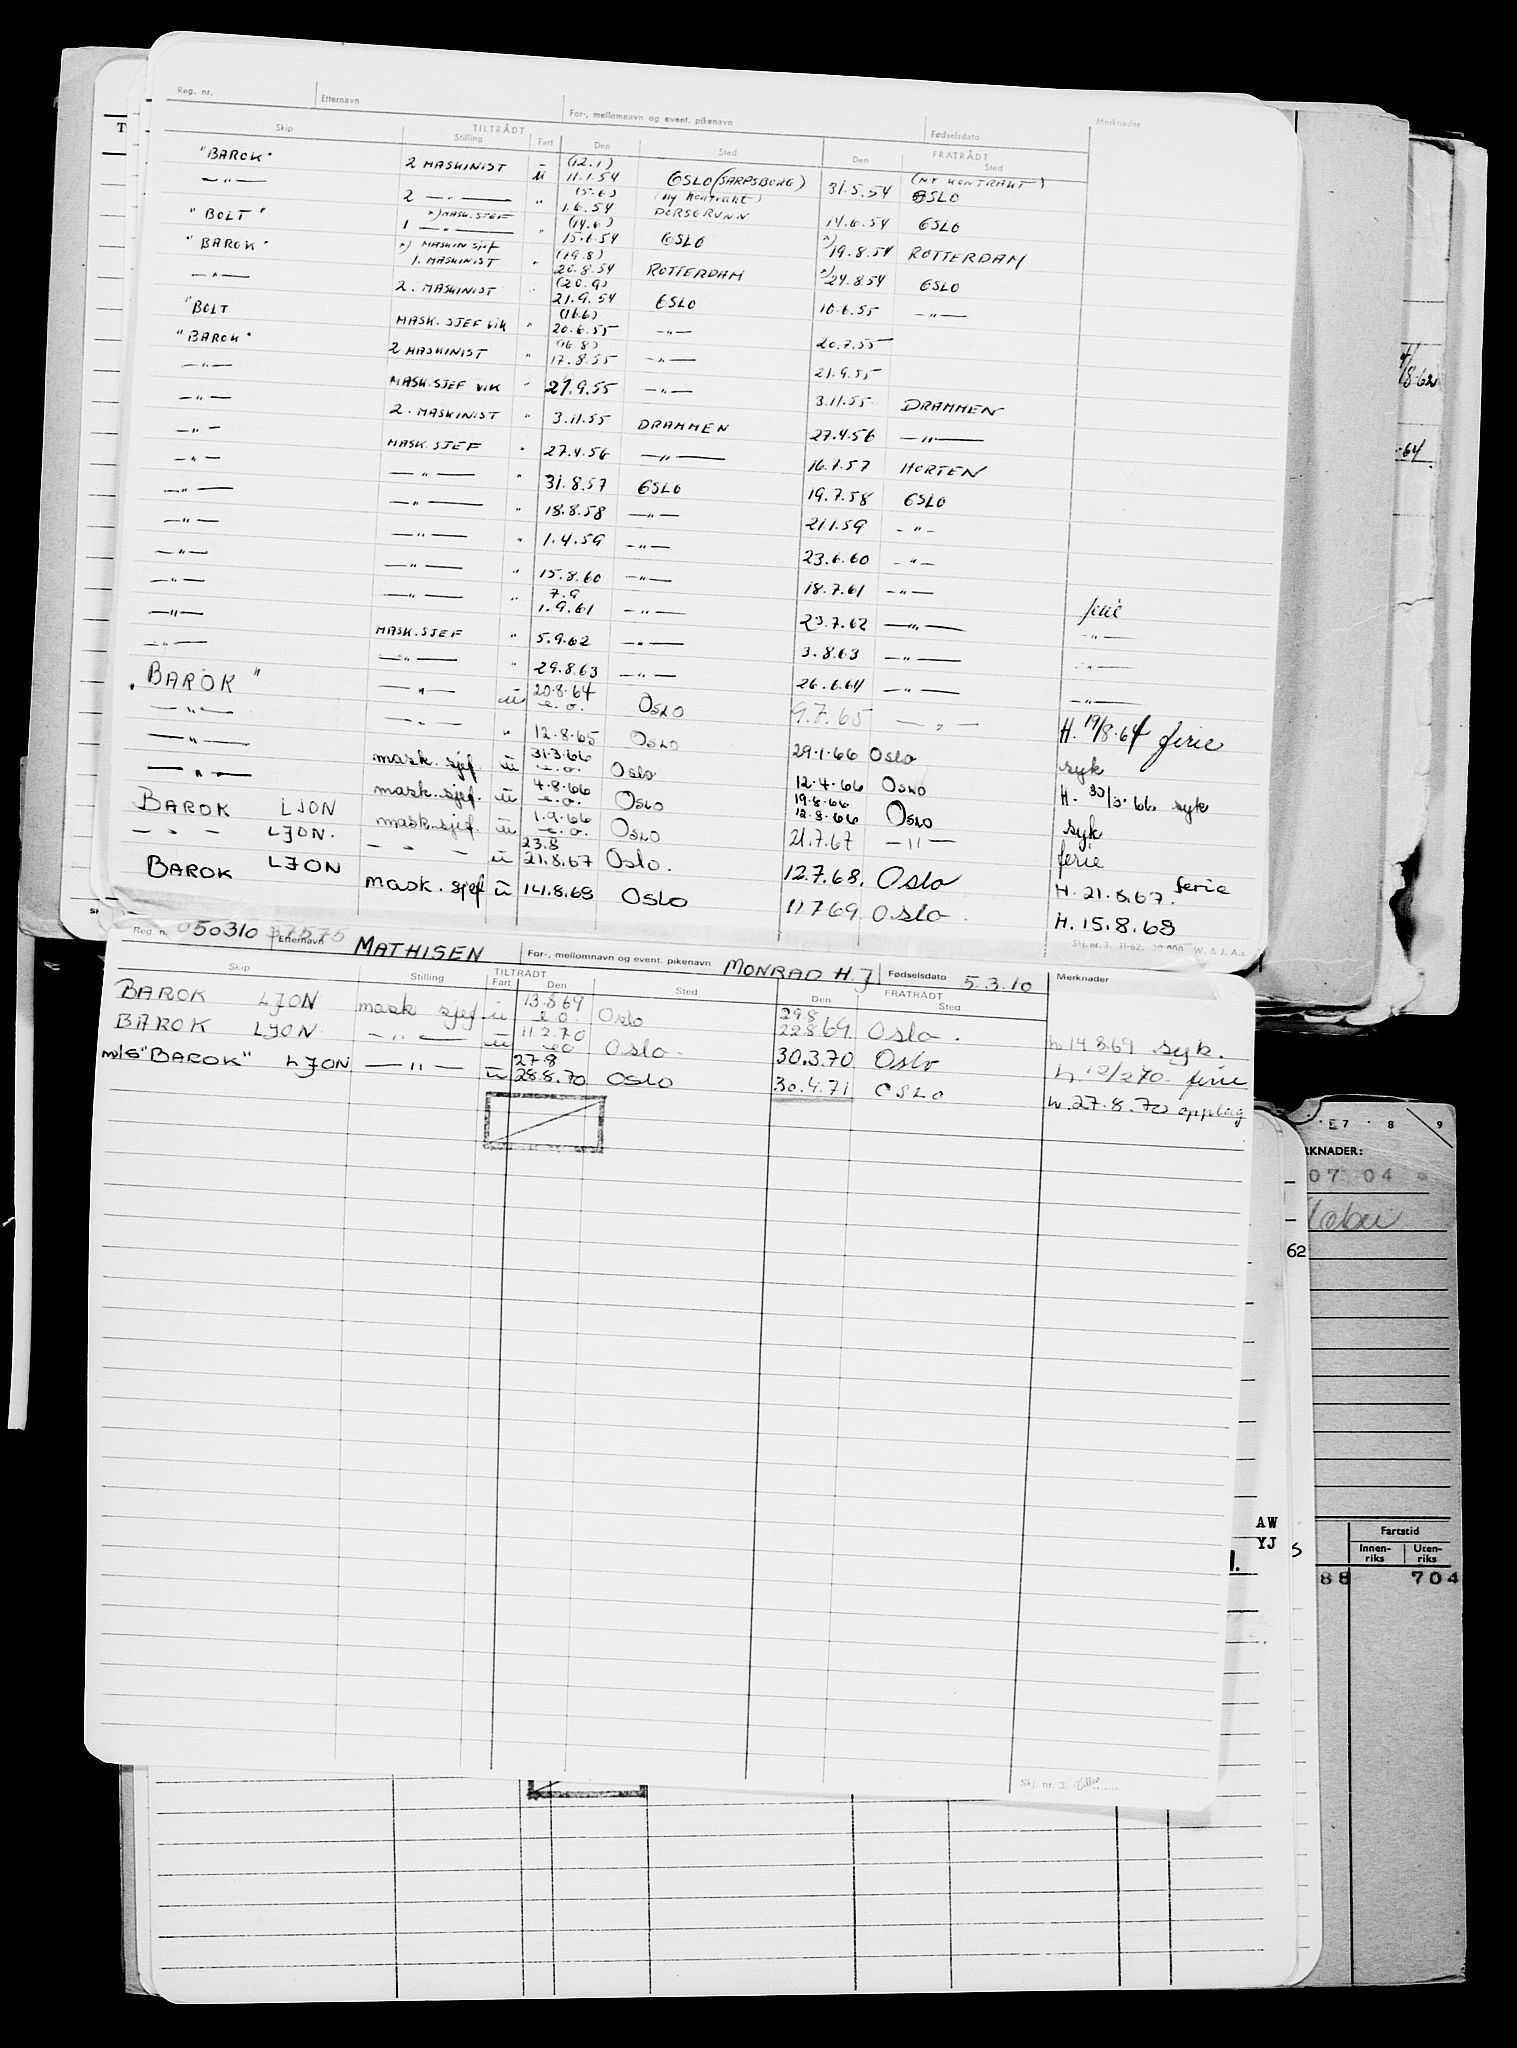 Reg. nr. Etternavn For-, mellomnavn og event. pikenavn Fødselsdato Merknader
Skip TILTRÅDT Stilling Fart Den Sted Den FRATRÅDT Sted
"BAROK" 2 MASKINIST (12.1) 11.1.54 OSLO (SARPSBORG) 31.5.54 (NY KONTRAKT) OSLO
—"— 2 —"— " (5.6) 1.6.54 (Ny Kontrakt) PORSGRUNN 14.6.54 OSLO
"BOLT" 1 —"— x) MASK.SJEF " (14.6) 15.6.54 OSLO x) 19.8.54 ROTTERDAM
"BAROK" x) MASKIN SJEF 1. MASKINIST " (19.8) 20.8.54 ROTTERDAM x) 24.8.54 OSLO
—"— 2. MASKINIST " (20.9) 21.9.54 OSLO 10.6.55 —"—
"BOLT MASK. SJEF VIK " (16.6) 20.6.55 —"— 20.7.55
"BAROK" 2 MASKINIST " (16.8) 17.8.55 —"— 21.9.55
—"— MASK.SJEF VIK " 21.9.55 —"— 3.11.55 DRAMMEN
—"— 2. MASKINIST " 3.11.55 DRAMMEN 27.4.56 —"—
—"— MASK. SJEF " 27.4.56 —"— 16.7.57 HORTEN
—"— —"— " 31.8.57 OSLO 19.7.58 OSLO
—"— —"— " 18.8.58 —"— 21.1.59 —"—
—"— —"— " 1.4.59 —"— 23.6.60 —"—
—"— —"— " 15.8.60 —"— 18.7.61 —"—
—"— —"— " 7.9 1.9.61 —"— 23.7.62 —"— ferie
—"— MASK.SJEF " 5.9.62 —"— 3.8.63 —"— —"—
—"— —"— " 29.8.63 —"— 26.6.64 —"— —"—
"BAROK" —"— u 20.8.64 e.o. OSLO 9.7.65 —"— —"—
—"— —"— " 12.8.65 OSLO 29.1.66 Oslo H. 19/8.64 ferie
—"— mask. sjef u 31.3.66 e.o. Oslo 12.4.66 Oslo syk
—"— mask. sjef. u 4.8.66 e.o. Oslo 19.8.66 12.8.66 Oslo H. 30/3.66 syk
BAROK LJON mask. sjef u 1.9.66 e.o. Oslo 21.7.67 —"— syk
—"— LJON. —"— u 23.8 21.8.67 Oslo. 12.7.68. Oslo ferie
BAROK LJON mask. sjef u 14.8.68 Oslo 11.7.69 Oslo. H. 21.8.67. ferie
H. 15.8.68
Skj. nr. 3. 11-62. 30 000 W. & J. A.s.
Reg. nr. 050310 37575 Etternavn MATHISEN For-, mellomnavn og event. pikenavn MONRAD H.J Fødselsdato 5.3.10 Merknader
Skip TILTRÅDT Stilling Fart Den Sted Den FRATRÅDT Sted
BAROK LJON mask sjef u 13.8.69 e.o. Oslo 29.8 22.8.69. Oslo. h. 14.8.69 syk.
BAROK LJON. —"— u 11.2.70 e.o Oslo. 30.3.70 Oslo h. 12/2 70. ferie
m/s "BAROK" LJON —"— u 27.8 28.8.70 OSLO 30.4.71 OSLO h. 27.8.70 opplag
Skj. nr. 3.
/8-62
-64
7 . 8 9
RKNADER:
07 04
62
AW
YJ
s
Fartstid
Innen-riks Uten-riks
88 704